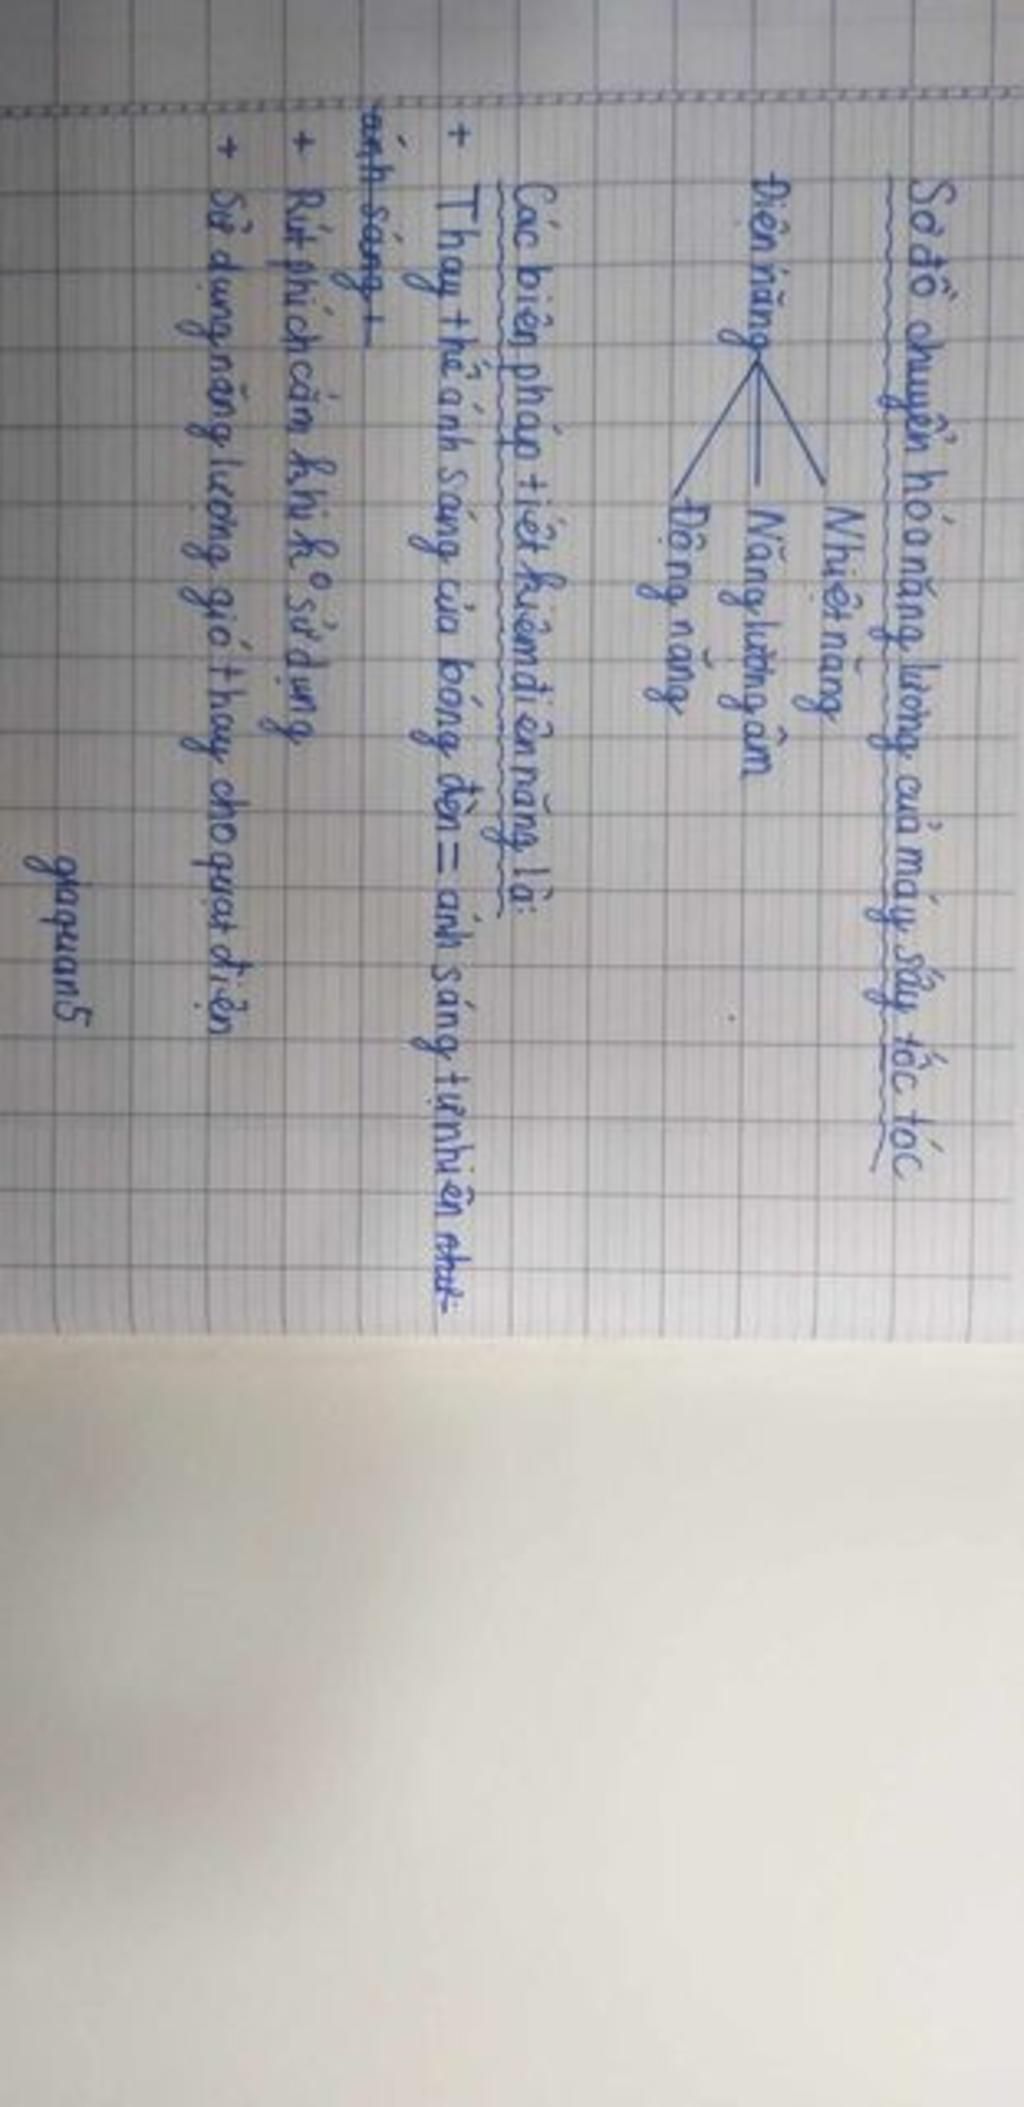 Sơ đồ chuyển hóa năng lượng của máy sấy tóc tóc
Nhiệt năng
Điện năng Năng lường âm
Động năng
Các biện pháp tiết kiệm điện năng là:
+ Thay thế ánh sáng của bóng đèn = ánh sáng tự nhiên như
ánh sáng t
+ Rút phích cắm khi k° sử dụng
+ Sử dụng năng lượng gió thay cho quạt điện
giaquan5